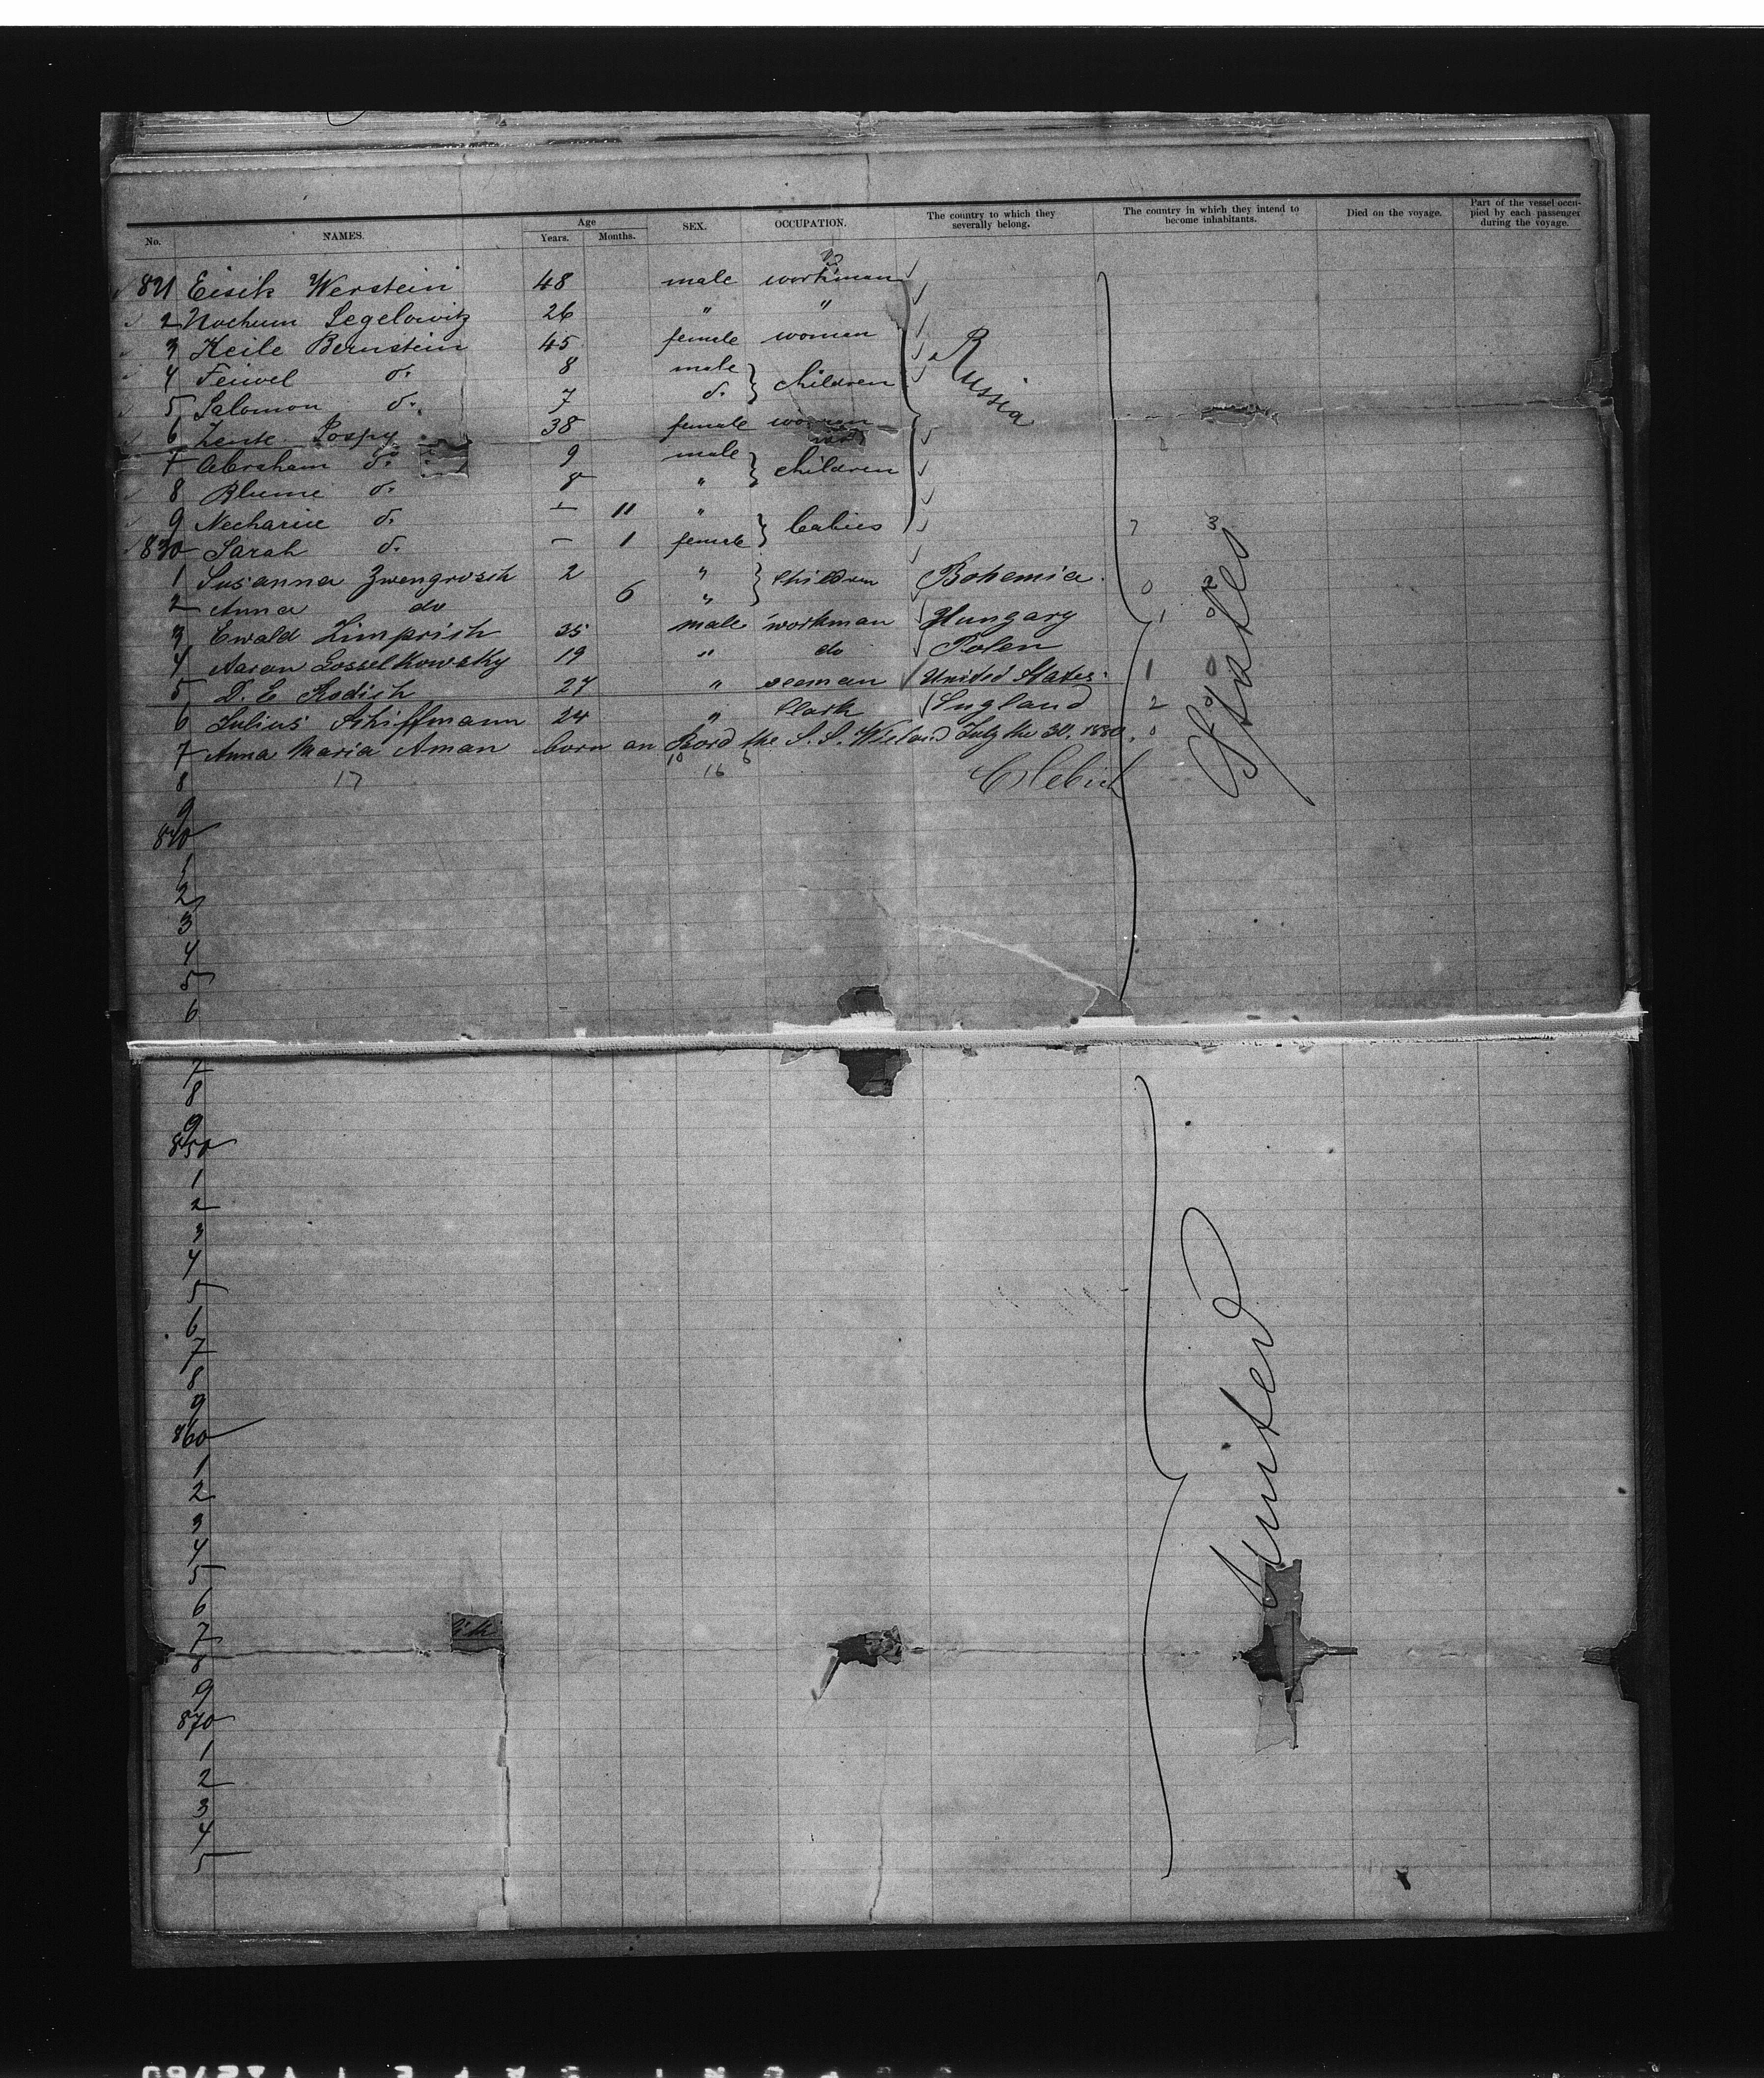 No. NAMES. Age Years. Months. SEX. OCCUPATION. The country to which they severally belong. The country in which they intend to become inhabitants. Died on the voyage. Part of the vessel occupied by each passenger during the voyage.
821 Eisik Werstein 48 male workman
2 Nochum Segelowitz 26 " "
3 Keile Bernstein 45 female woman
4 Feiwel d. 8 male children Russia
5 Salomon d. 7 d.
6 Zente Pospy 38 female woman
7 Abraham d. 9 male children
8 Blume d. 8 "
9 d. 11 " babies 7 3
830 Sarah d. — 1 female
1 Susanna Zwengrosch 2 " children Bohemia 0 2
2 Anna do 6 "
3 Ewald Limprich 35 male workman Hungary 1 0
4 Aaron Gosselkowsky 19 " do Polen
5 D. E. Rodich 27 " seeman United States 1 0
6 Julius Schiffmann 24 " Clark England 2 0
7 Anna Maria Aman born on Bord the S. S. Wieland July the 30. 1880. 0
8 17 10 6 16
9
840
1
2
3
4
5
6
7
8
9
850
1
2
3
4
5
6
7
8
9
860
1
2
3
4
5
6
7
8
9
870
1
2
3
4
5
United States